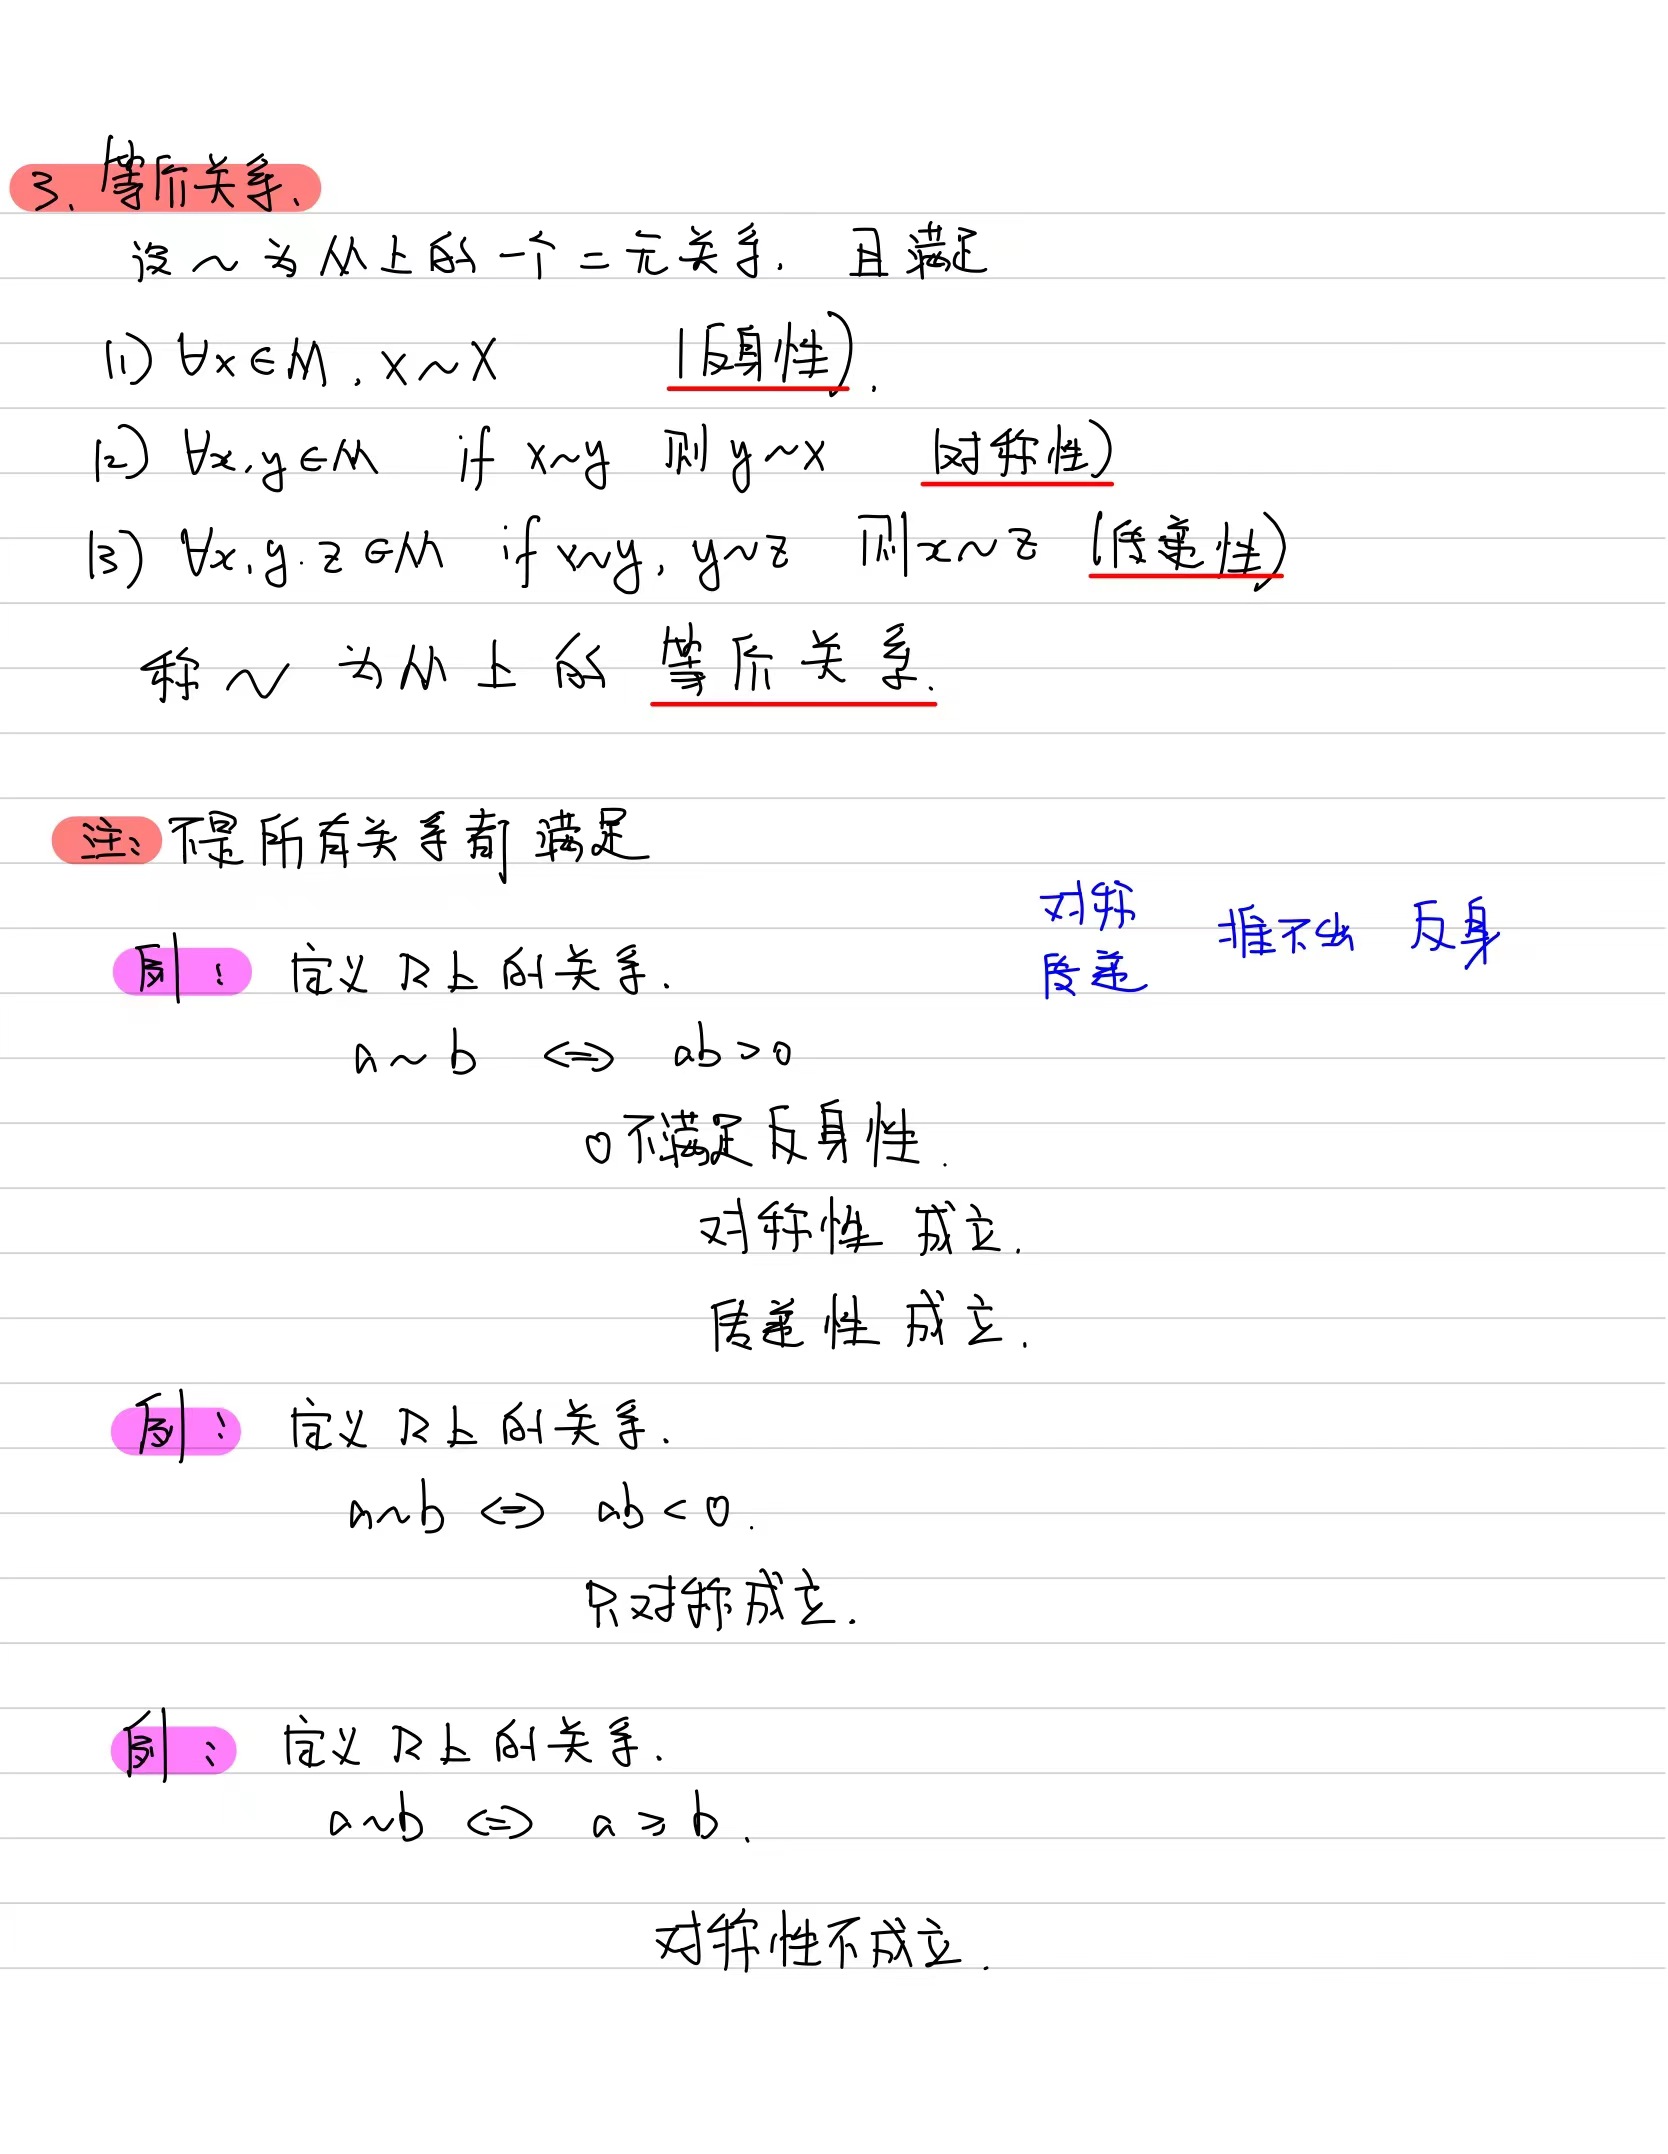 3、等价关系、
设 ~ 为 M 上的一个二元关系. 且满足
(1) ∀x∈M, x~x (反身性).
(2) ∀x,y∈M if x~y 则 y~x (对称性)
(3) ∀x,y.z∈M if x~y, y~z 则 x~z (传递性)
称 ~ 为 M 上的 等价关系.
注: 不是所有关系都满足
对称
传递 推不出 反身
例: 定义 R 上的关系.
a~b ⇔ ab>0
0不满足反身性.
对称性 成立.
传递性 成立.
例: 定义 R 上的关系.
a~b ⇔ ab<0.
只对称成立.
例: 定义 R 上的关系.
a~b ⇔ a≥b.
对称性不成立.